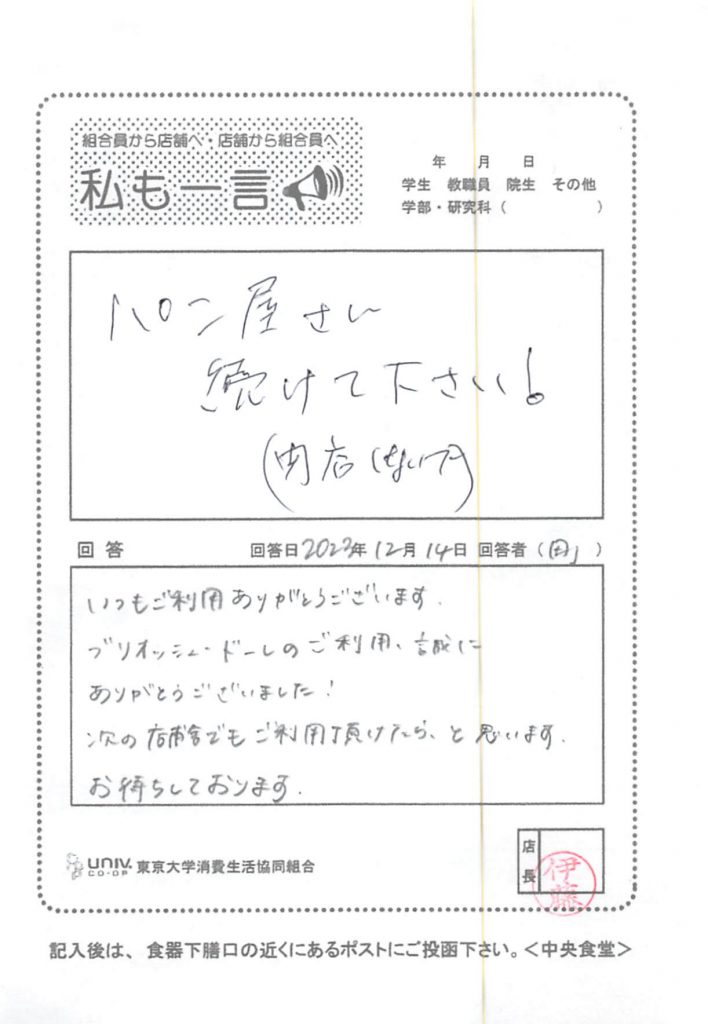 組合員から店舗へ・店舗から組合員へ
私も一言
年 月 日
学生 教職員 院生 その他
学部・研究科( )
パン屋さん
続けて下さい!
(閉店しないで)
回答 回答日2022年12月14日 回答者( )
いつもご利用ありがとうございます.
ブリオッシュ・ドーレのご利用、誠に
ありがとうございました!
次の店舗でもご利用頂けたら、と思います.
お待ちしております.
店長
伊藤
UNIV. CO-OP 東京大学消費生活協同組合
記入後は、食器下膳口の近くにあるポストにご投函下さい。<中央食堂>